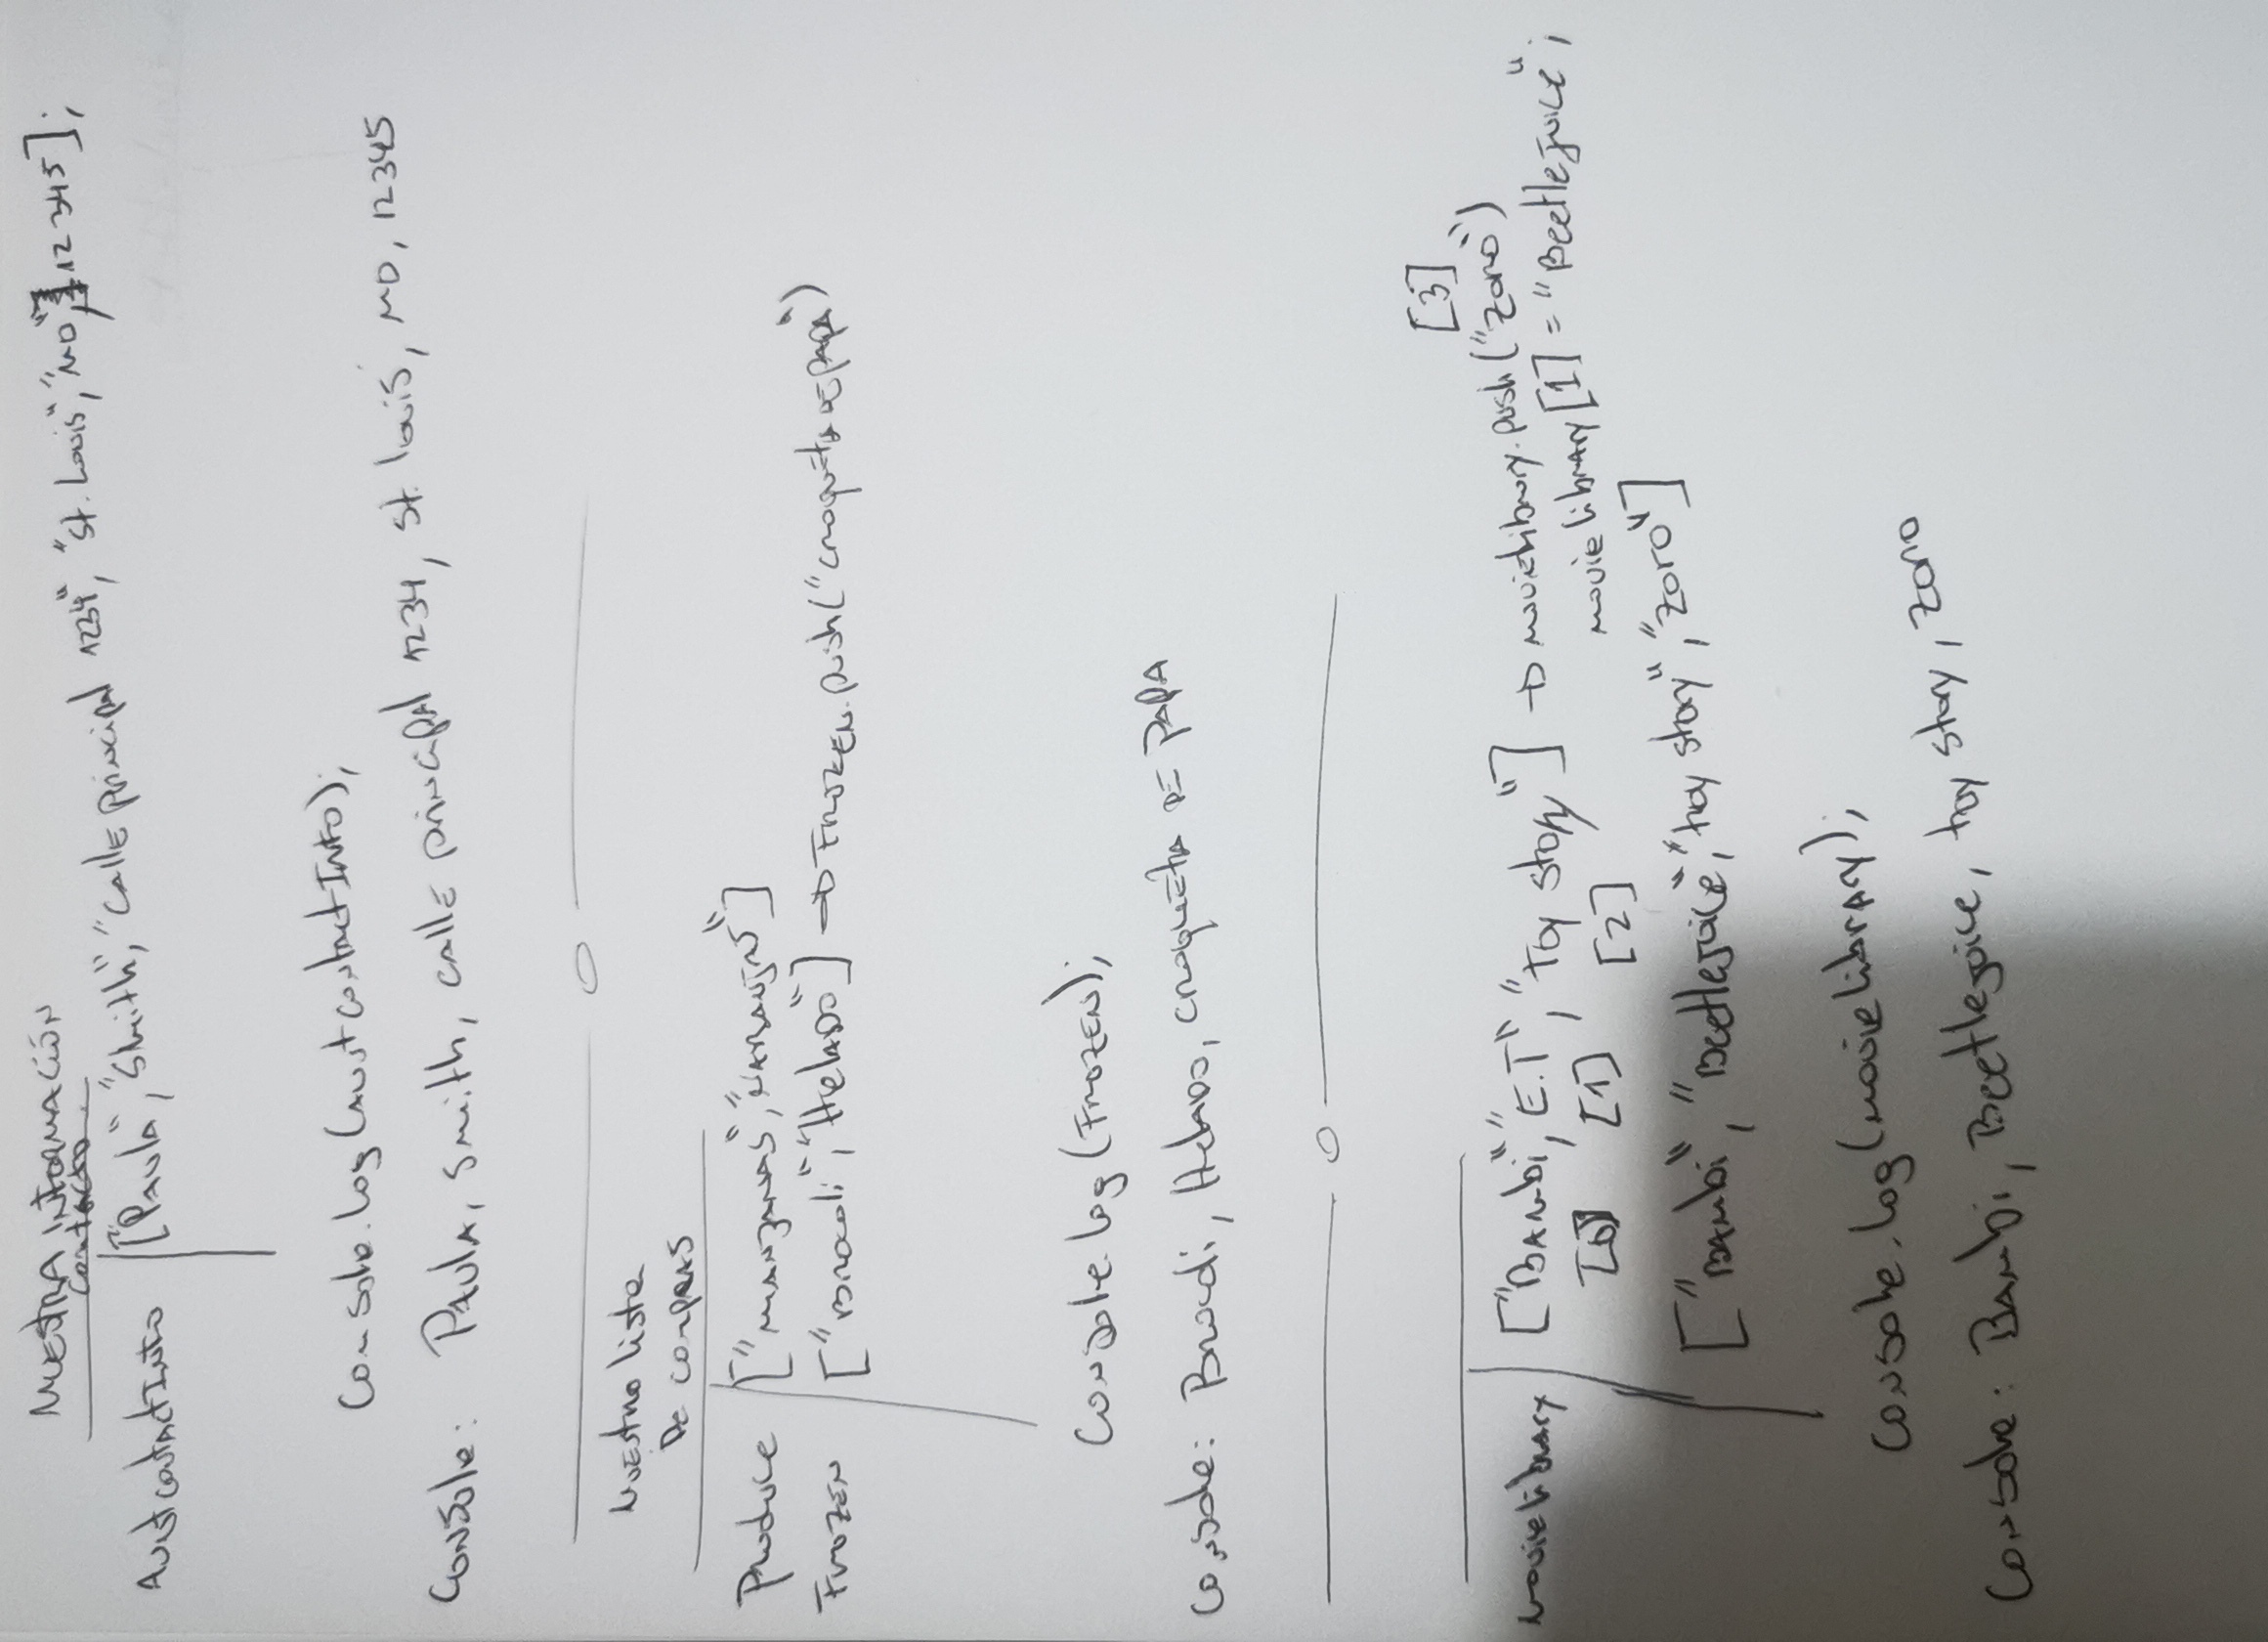 MUESTRA INFORMACIÓN
contacto
AuntContactInfo ["Paula", "Smith", "Calle principal 1234", "St. Louis", "MO", 12345];
Console.log(auntContactInfo);
Console: Paula, Smith, calle principal 1234, St. Louis, MO, 12345
Nuestra lista
De compras
Produce ["manzanas", "naranjas"]
Frozen ["Brocoli", "Helado"] → Frozen.push("croqueta de papa")
Console.log(Frozen);
Console: Brocoli, Helado, croqueta de papa
[3]
movielibrary ["Bambi", "E.T", "Toy Story"] → movielibrary.push("Zorro")
[0] [1] [2] movielibrary[1] = "Beetlejuice";
["Bambi", "Beetlejuice", "toy story", "Zorro"]
Console.log(movielibrary);
Console: Bambi, Beetlejuice, toy story, Zorro